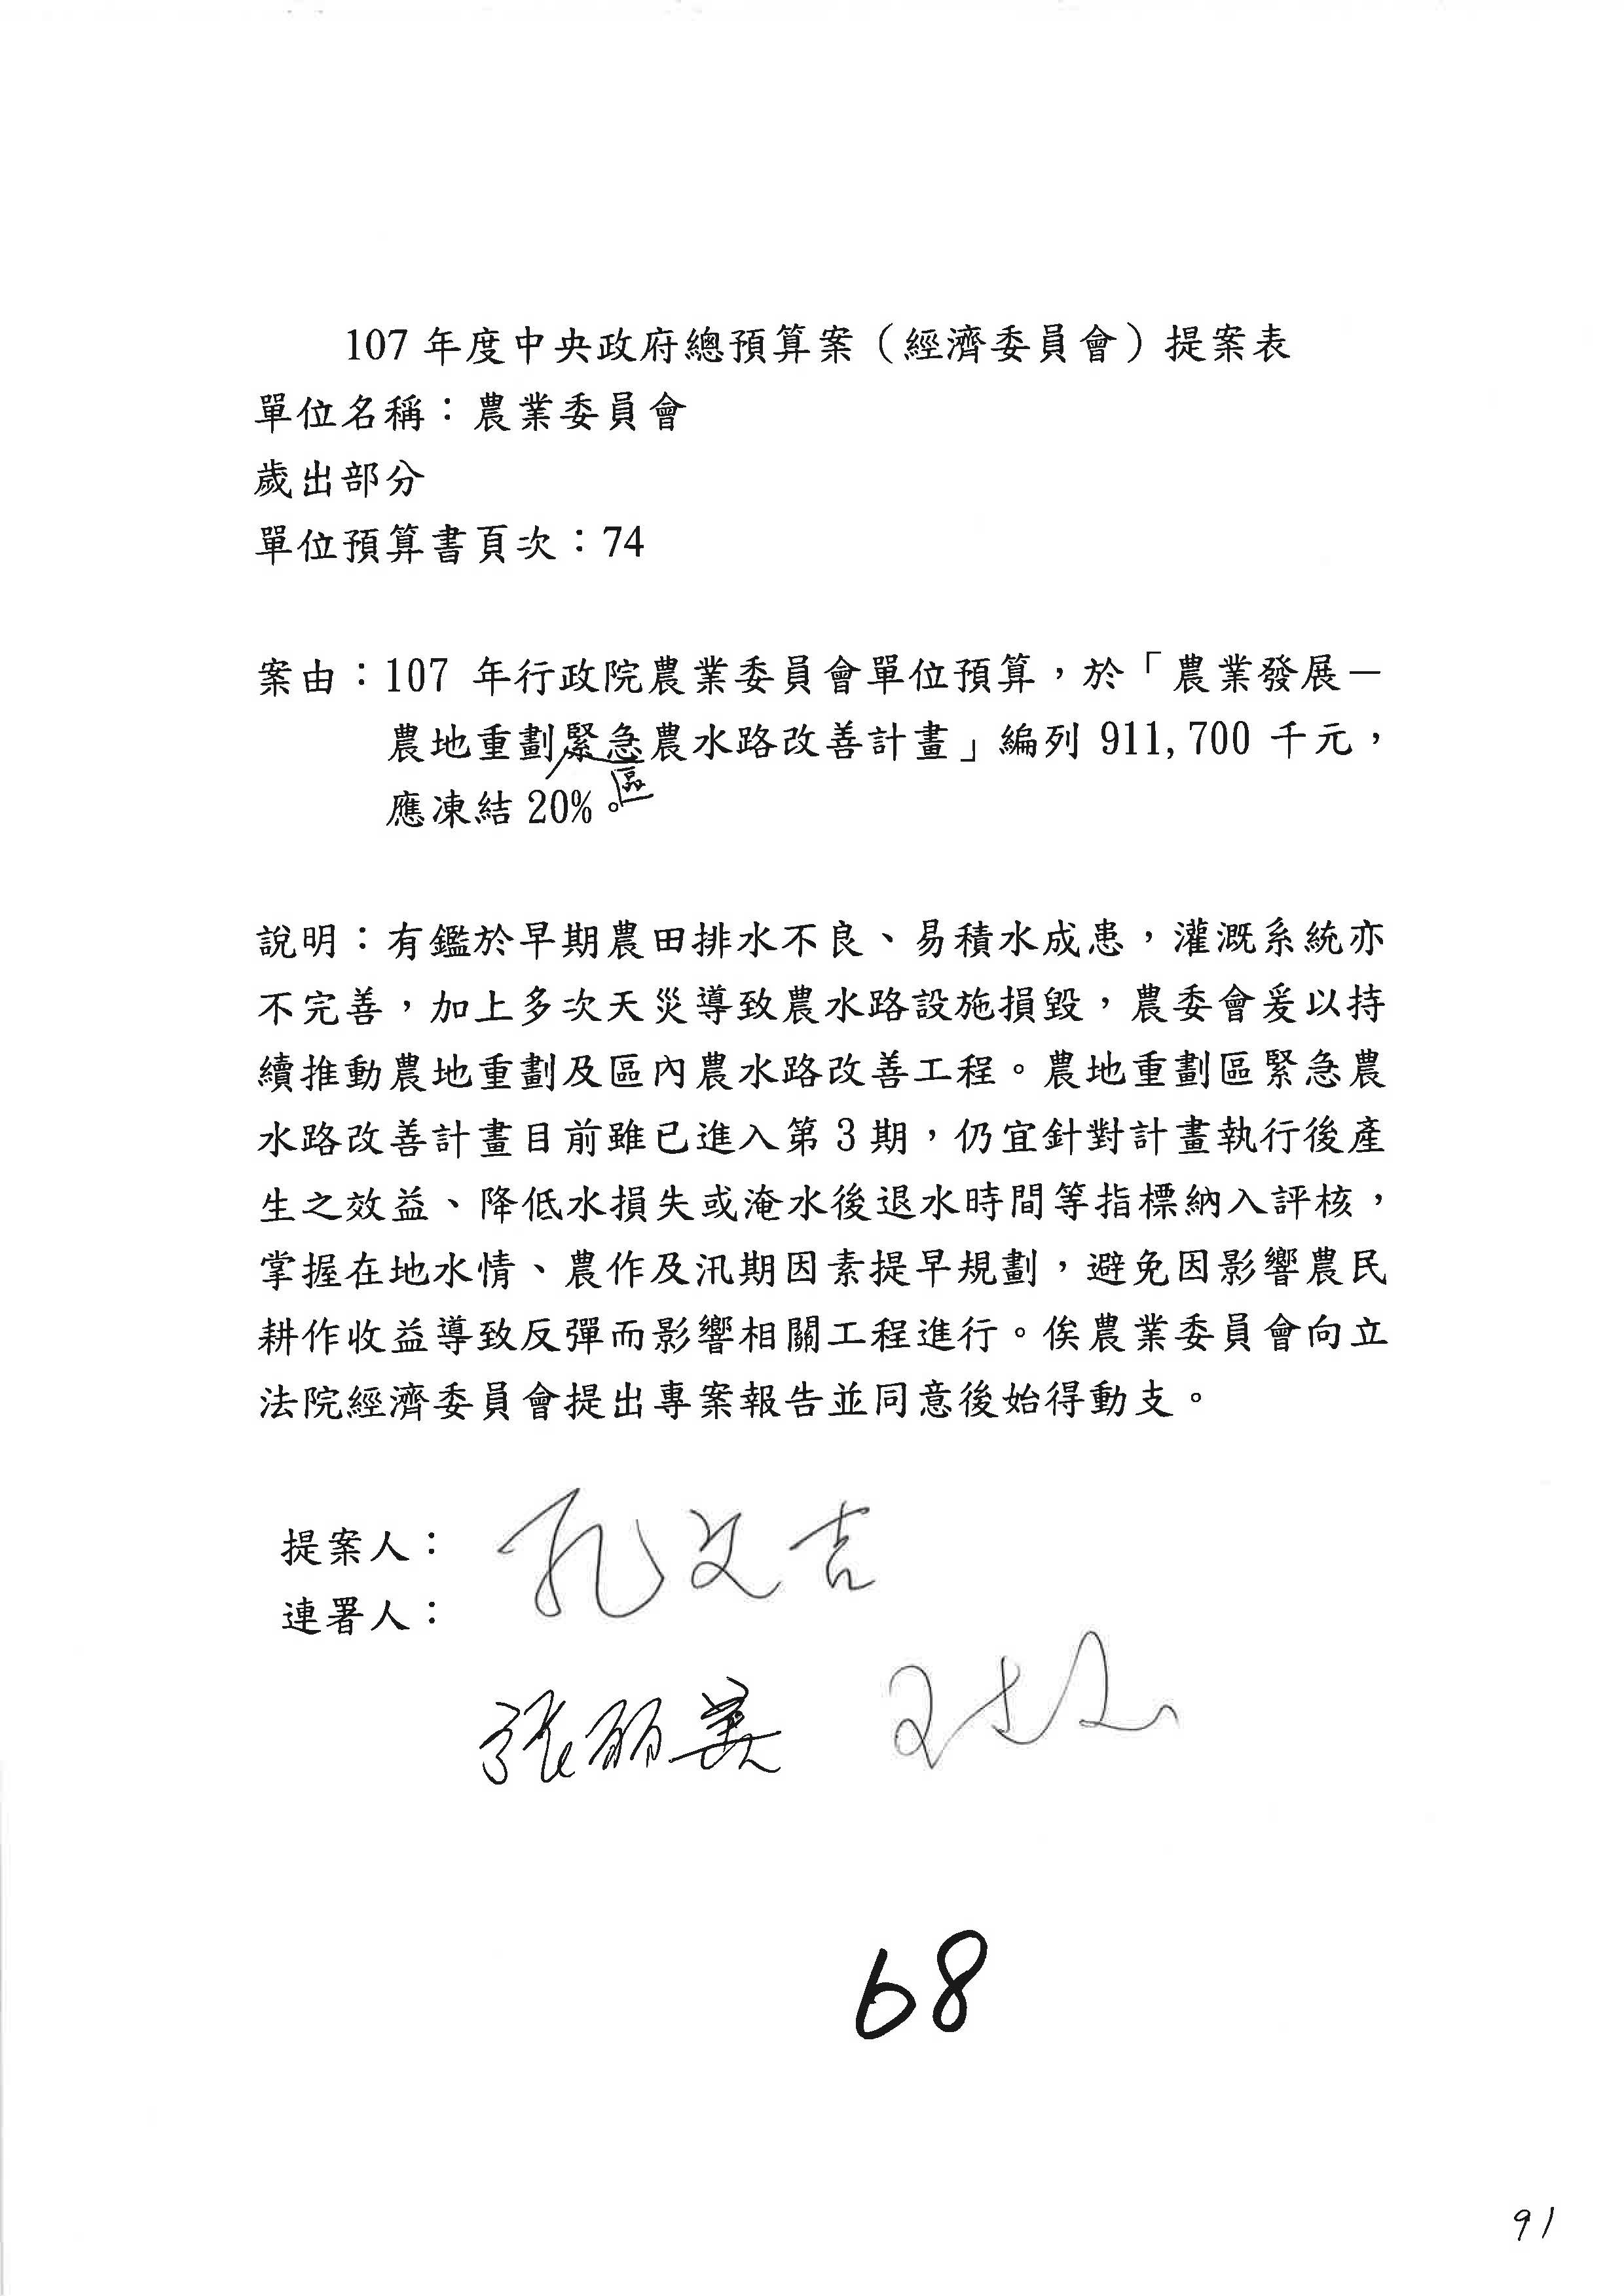 107 年度中央政府總預算案（經濟委員會）提案表
單位名稱：農業委員會
歲出部分
單位預算書頁次：74
案由：107 年行政院農業委員會單位預算，於「農業發展－
農地重劃緊急農水路改善計畫」編列 911,700 千元，
區
應凍結 20%。
說明：有鑑於早期農田排水不良、易積水成患，灌溉系統亦
不完善，加上多次天災導致農水路設施損毀，農委會爰以持
續推動農地重劃及區內農水路改善工程。農地重劃區緊急農
水路改善計畫目前雖已進入第 3 期，仍宜針對計畫執行後產
生之效益、降低水損失或淹水後退水時間等指標納入評核，
掌握在地水情、農作及汛期因素提早規劃，避免因影響農民
耕作收益導致反彈而影響相關工程進行。俟農業委員會向立
法院經濟委員會提出專案報告並同意後始得動支。
提案人：孔文吉
連署人：
張麗善
68
91